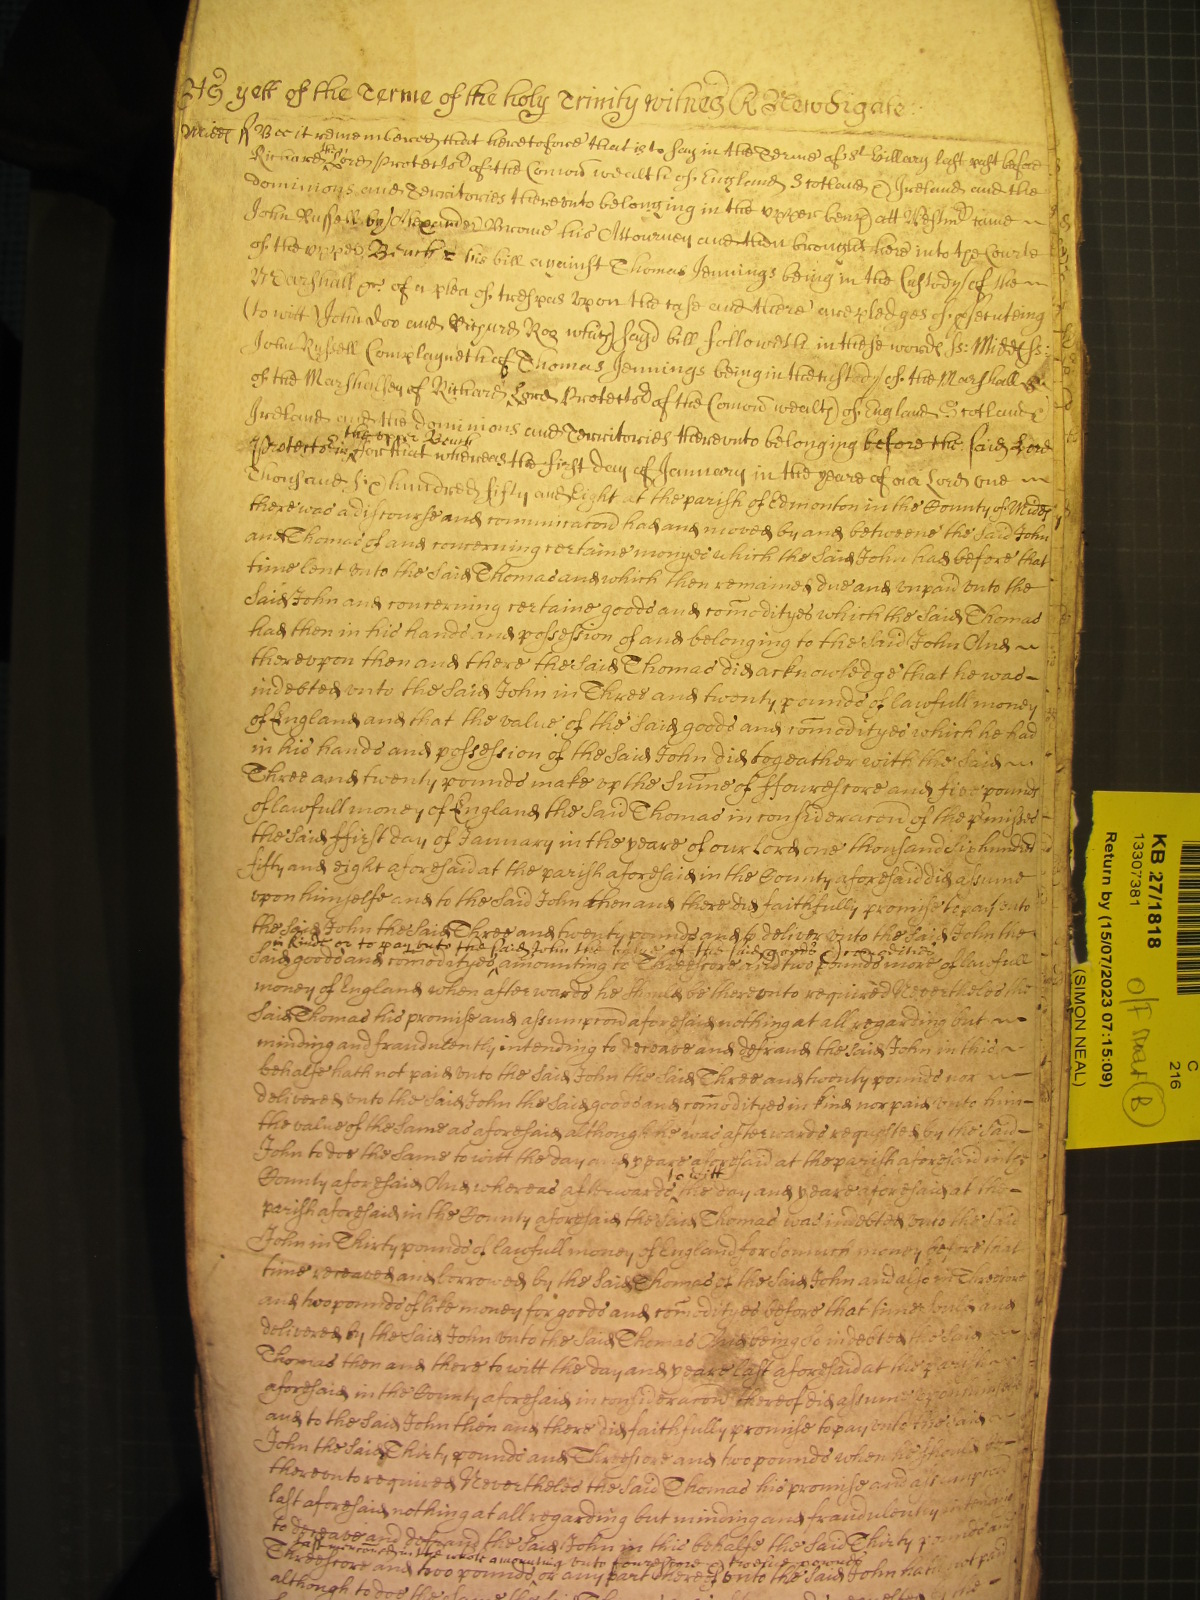 As yett of the Terme of the holy Trinity witnes R Newdigate
Midds ss Bee it remembered that heretofore that is to say in the Terme of St Hillary last past before
Richard the Lord Protector of the Comon wealth of England Scotland & Ireland and the
dominions and Territories thereunto belonging in the upper bench att Westmr came
John Russell by Alexander Brome his Attourney and then brought here into the Courte
of the upper Bench his bill against Thomas Jennings being in the Custody of the
Marshall &c of a plea of trespas upon the case and there are pledges of prsecuteing
(to witt) John Doo and Richard Roo which said bill followeth in these words ss: Midds ss:
John Russell Complayneth of Thomas Jennings being in the custody of the Marshall
of the Marshalsey of Richard Lord Protector of the Comon wealth of England Scotland &
Ireland and the dominions and Territories thereunto belonging before the said Lord
Protector in the upper Bench for that whereas the first day of January in the yeare of our Lord one
Thousand Six hundred fifty and Eight at the parish of Edmonton in the County of Midds
there was a discourse and communicacon had and moved by and betweene the said John
and Thomas of and concerning certaine monyes which the said John had before that
time lent unto the said Thomas and which then remained due and unpaid unto the
said John and concerning certaine goods and comodityes which the said Thomas
had then in his hands and possession of and belonging to the said John And
thereupon then and there the said Thomas did acknowledge that he was
indebted unto the said John in Three and twenty pounds of lawfull money
of England and that the value of the said goods and comodityes which he had
in his hands and possession of the said John did togeather with the said
Three and twenty pounds make up the Sume of ffourescore and five pounds
of lawfull money of England the said Thomas in consideracon of the premisses
the said ffirst day of January in the yeare of our Lord one thousand six hundred
fifty and eight aforesaid at the parish aforesaid in the County aforesaid did assume
upon himselfe and to the said John then and there did faithfully promise to pay unto
the said John the said Three and twenty pounds and to deliver unto the said John the
in kinde or to pay unto the said John the value of the said goods & comodities
said goods and comodityes amounting to Threescore and two pounds more of lawfull
money of England when afterwards he should be thereunto required Nevertheles the
said Thomas his promise and assumpcon aforesaid nothing at all regarding but
minding and fraudulently intending to deceave and defraud the said John in this
behalfe hath not paid unto the said John the said Three and twenty pounds nor
delivered unto the said John the said goods and comodityes in kind nor paid unto him
the value of the same as aforesaid although he was afterwards requested by the said
John to doe the same to witt the day and yeare aforesaid at the parish aforesaid in the
County aforesaid And whereas afterwards to witt the day and yeare aforesaid at the
parish aforesaid in the County aforesaid the said Thomas was indebted unto the said
John in Thirty pounds of lawfull money of England for so much money before that
time receaved and borrowed by the said Thomas of the said John and also in Threescore
and two pounds of like money for goods and comodityes before that time sould and
delivered by the said John unto the said Thomas And being so indebted the said
Thomas then and there to witt the day and yeare last aforesaid at the parish
aforesaid in the County aforesaid in consideracon thereof did assume upon himselfe
and to the said John then and there did faithfully promise to pay unto the said
John the said Thirty pounds and Threescore and two pounds when he should be
thereunto required Nevertheles the said Thomas his promise and assumpcon
last aforesaid nothing at all regarding but minding and fraudulently intending
to deceave and defraud the said John in this behalfe the said Thirty pounds and
last mencioned in the whole amounting unto fourescore & twelve pounds
Threescore and two pounds or any part thereof unto the said John hath not paid
although to doe the same the said
KB 27/1818
13307381
Return by (15/07/2023 07:15:09)
(SIMON NEAL)
C
216